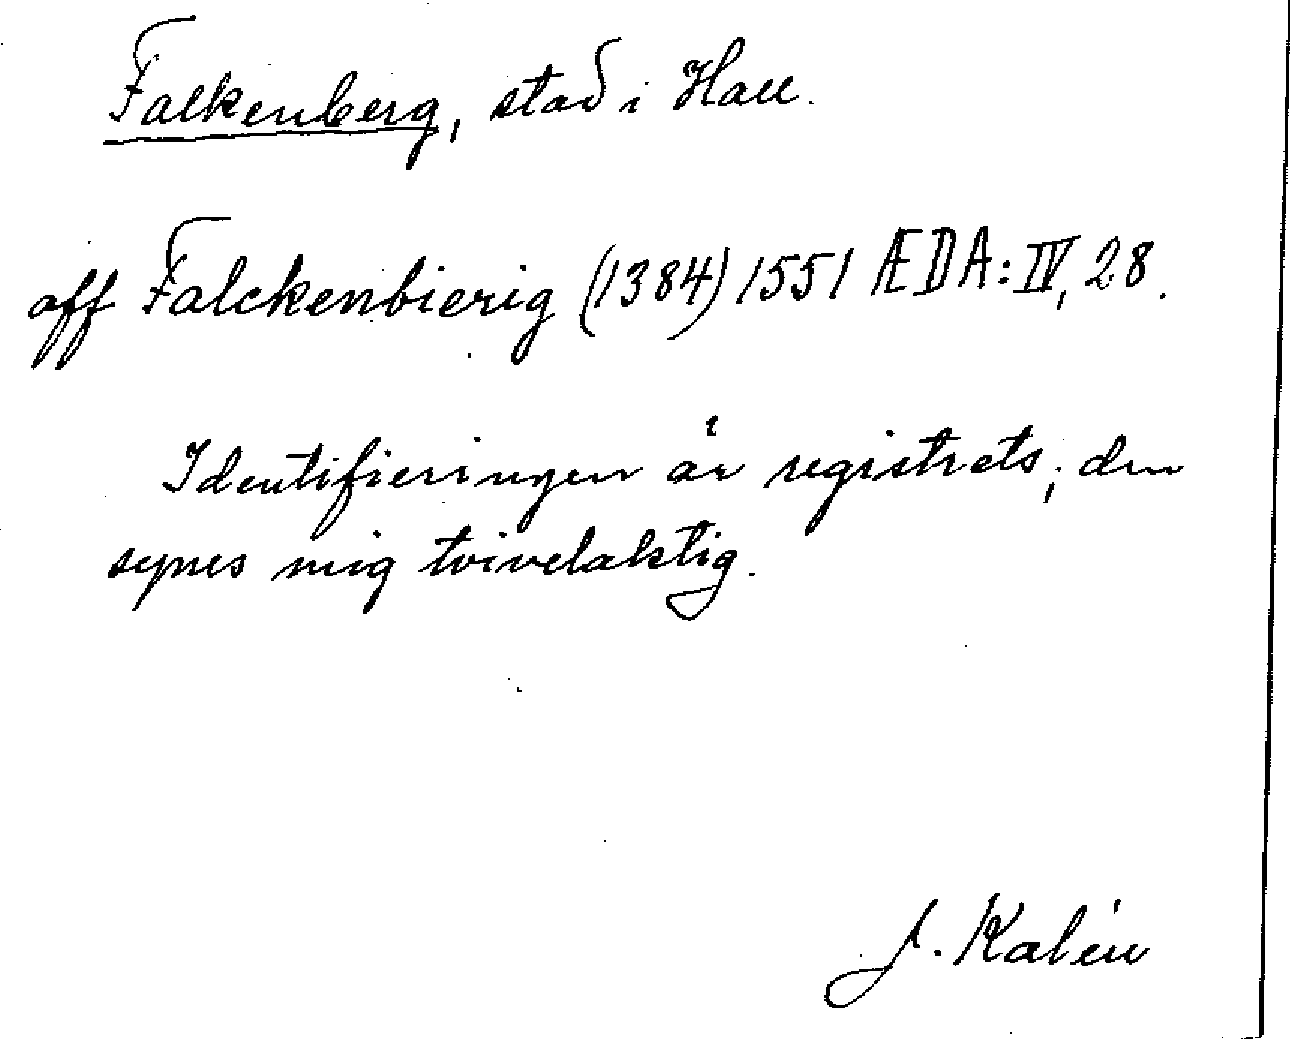 Falkenberg, stad i Hall.
off Falckenbierig (1384) 1551 ÆDA: IV, 28.
Identifieringen är registrets; den
synes mig tvivelaktig.
J. Kalén